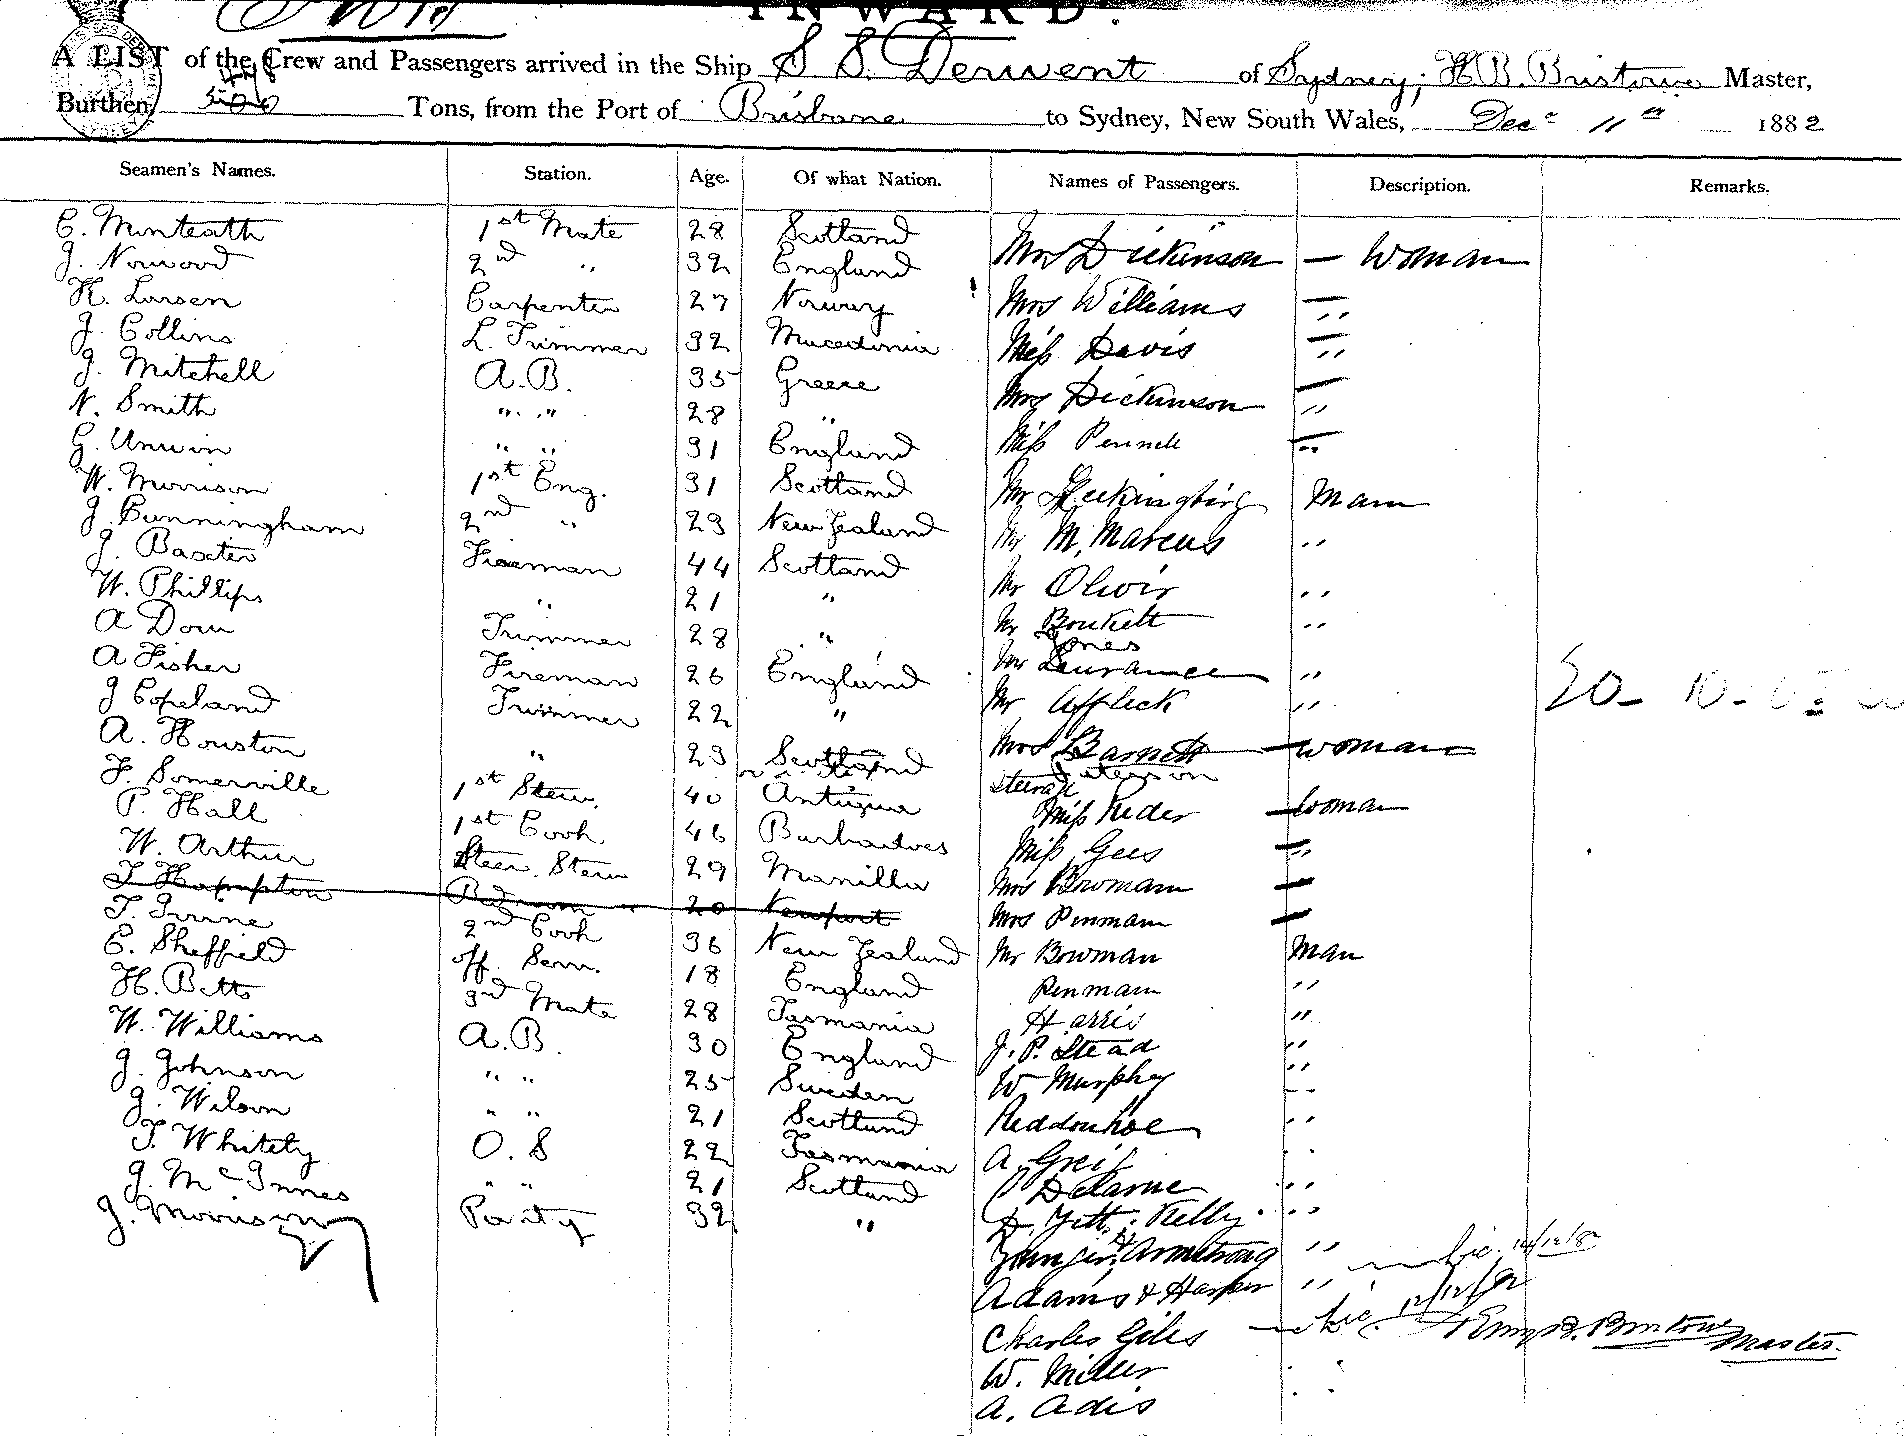 INWARD.
A LIST of the Crew and Passengers arrived in the Ship S S. Derwent of Sydney, H B. Bristowe Master,
Burthen, Tons, from the Port of Brisbane to Sydney, New South Wales, Decr 11th 1882
Seamen's Names. Station. Age. Of what Nation. Names of Passengers. Description. Remarks.
C. Minteath 1st Mate 28 Scotland Mrs Dickinson — Woman
J. Norwood 2nd " 32 England
H. Larsen Carpenter 27 Norway Mrs Williams — "
J. Collins L. Trimmer 32 Macedonia Miss Davis — "
J. Mitchell A.B. 35 Greece Mrs Dickinson — "
N. Smith " " 28 "
G. Unwin " " 31 England Miss Pennell — "
W. Morrison 1st Eng. 31 Scotland Mr Man
J. Cunningham 2nd " 23 New Zealand Mr M. Marcus "
J. Baxter Fireman 44 Scotland Mr Olivir "
W. Phillips " 21 " Mr "
A Dow Trimmer 28 " Jones
A Fisher Fireman 26 England Mr Laurance "
J Copeland Trimmer 22 " Mr Affleck "
A. Houston " 23 Scotland Mrs Barnett — woman
F. Somerville 1st Stew. 40 Antigua Steerage
P. Hall 1st Cook 46 Barbadoes Miss Rider — Woman
W. Arthur Steer. Stew 29 Manilla Miss Gees — "
T Hampton Bedroom " 20 Newport Mrs Bowman —
T. Irvine 2nd Cook 36 New Zealand Mrs Penman —
C. Sheffield off. Serv. 18 England Mr Bowman Man
H. Betts 3rd Mate 28 Tasmania Penmam "
W. Williams A.B. 30 England Harris "
J. Johnson " " 25 Sweden J. P. Stead "
J. Wilson " " 21 Scotland W Murphy "
T. Whitely O. S 22 Tasmania Reddonhoe "
J. McInnes " " 21 Scotland A. Greif "
J. Morrison Pantry 32 " Delarue "
Kelly "
Armstrong "
Adams & Harper " 12/12/82
Charles Giles Henry B. Bristowe Master.
W. Miller
A. Adis